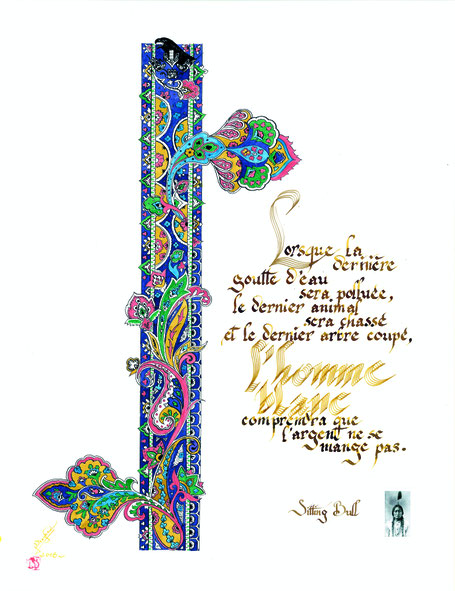 Lorsque la
dernière
goutte d'eau
sera polluée,
le dernier animal
sera chassé
et le dernier arbre coupé,
l'homme
blanc
comprendra que
l'argent ne se
mange pas.
Sitting Bull